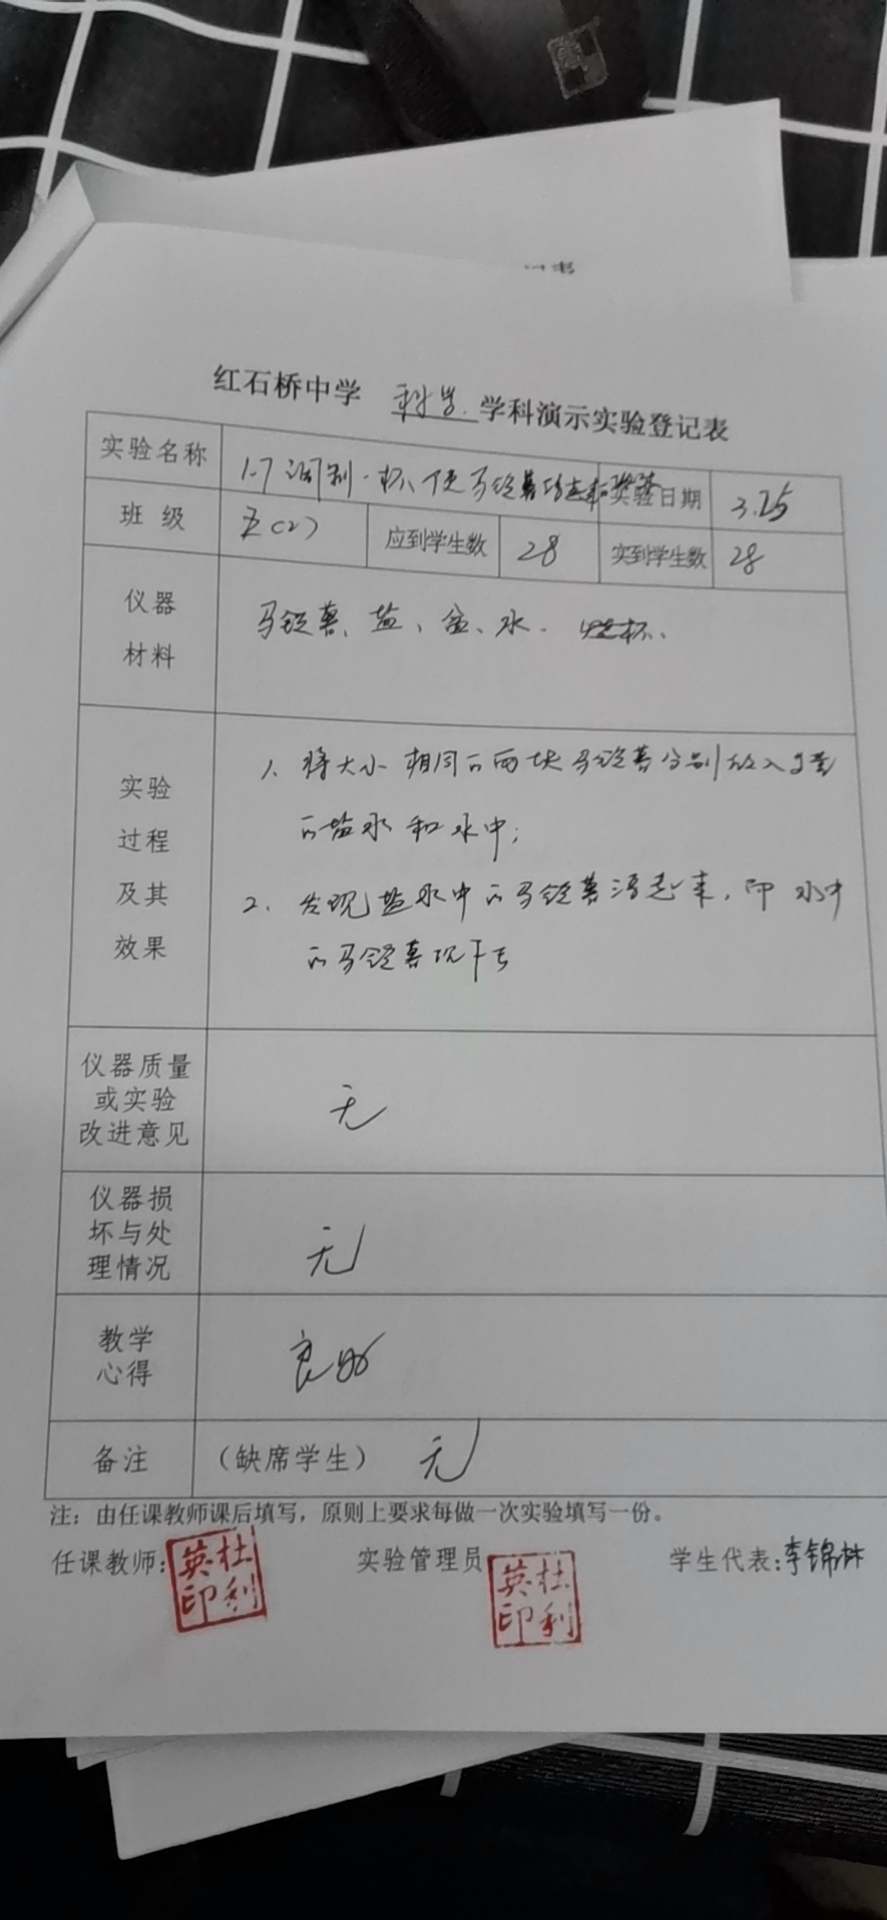 红石桥中学 科学 学科演示实验登记表
实验名称 1.7 调制一杯使马铃薯浮起来 实验日期 3.25
班 级 五(2) 应到学生数 28 实到学生数 28
仪器
材料
马铃薯、盐、盆、水. 烧杯、
实验
过程
及其
效果
1、将大小相同的两块马铃薯分别放入
的盐水和水中;
2、发现盐水中的马铃薯浮起来,即水中
的马铃薯沉下去
仪器质量
或实验
改进意见
无
仪器损
坏与处
理情况
无
教学
心得
良好
备注 (缺席学生) 无
注:由任课教师课后填写,原则上要求每做一次实验填写一份。
任课教师: 杜利英印 实验管理员 杜利英印 学生代表:李锦林